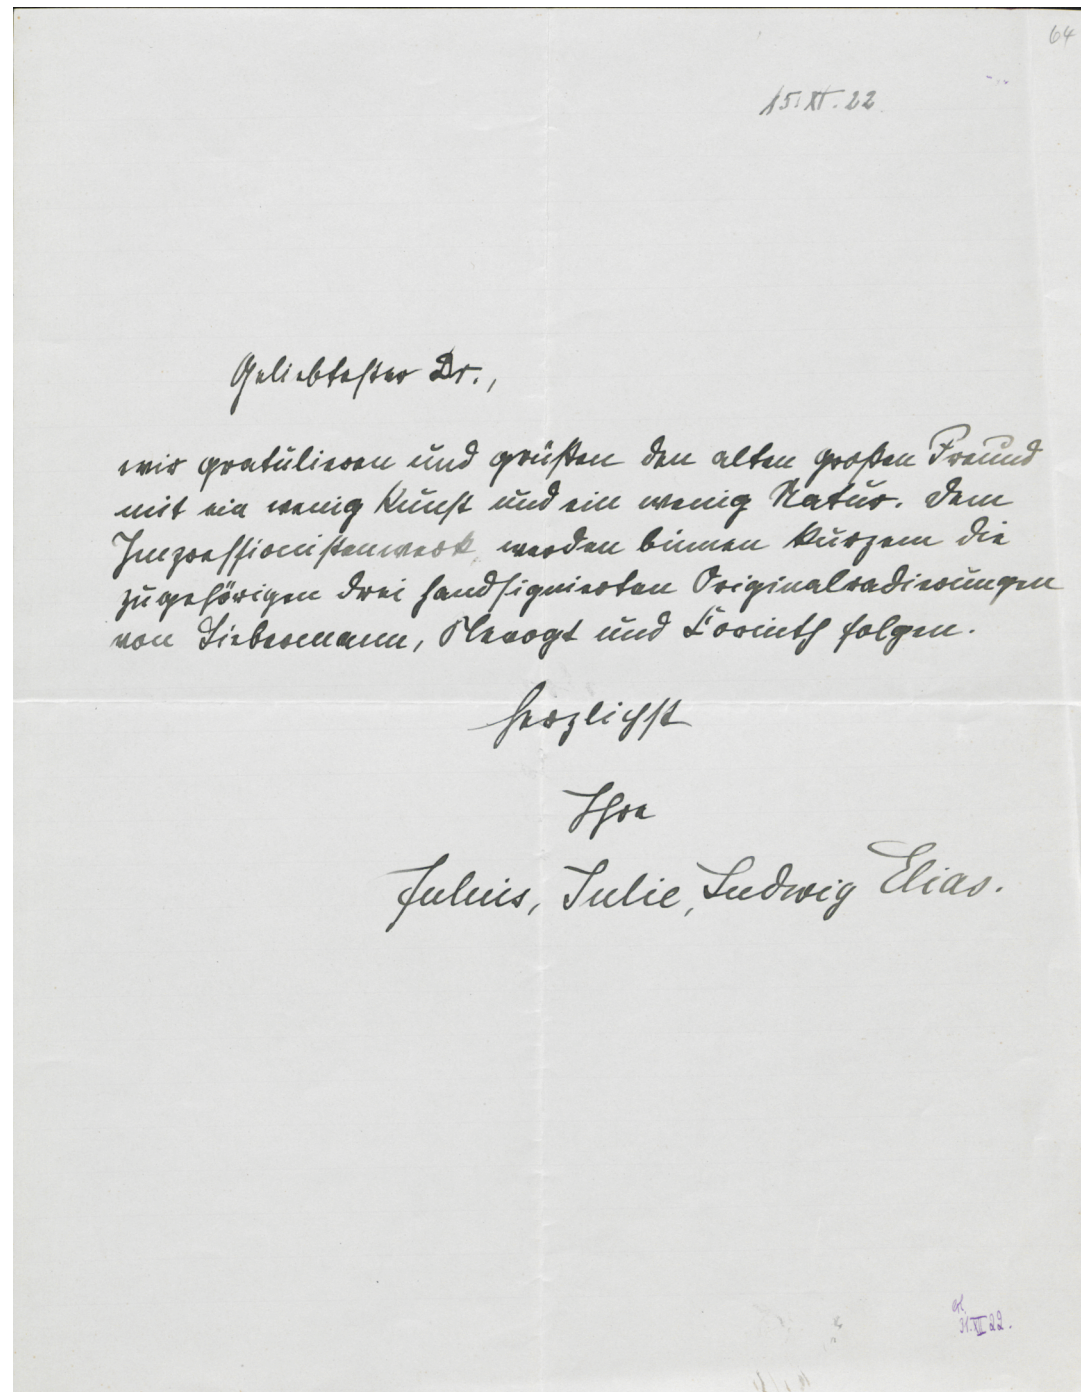 64
15. XI. 22.
Geliebtester Dr.,
wir gratulieren und grüßen den alten großen Freund
mit ein wenig Kunst und ein wenig Natur. Dem
Impressionistenwerk werden binnen kurzem die
zugehörigen drei handsignierten Originalradierungen
von Liebermann, Slevogt und Corinth folgen.
Herzlichst
Ihre
Julius, Julie, Ludwig Elias.
31. XII 22.